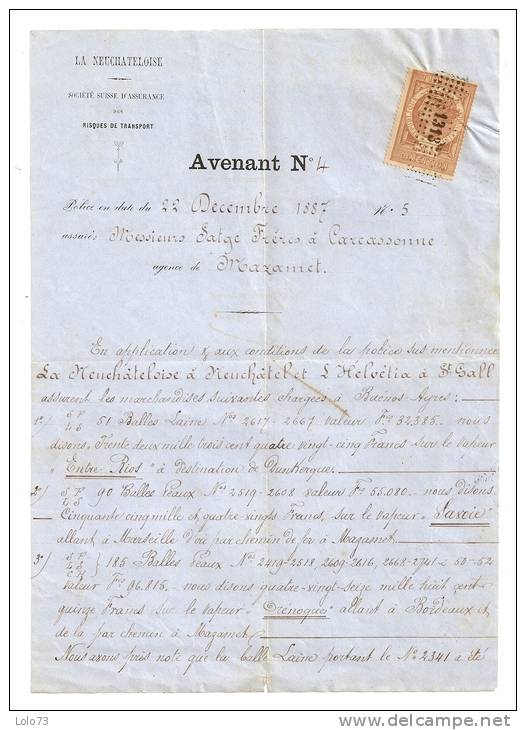 LA NEUCHATELOISE
SOCIÉTÉ SUISSE D'ASSURANCE
DES
RISQUES DE TRANSPORT
Avenant N° 4
Police en date du 22 Décembre 1887 N° 5
assurés Messieurs Satgé Frères à Carcassonne
agence de Mazamet.
En application & aux conditions de la police sus mentionnée
La Neuchâteloise à Neuchâtel et L'Helvétia à St Gall
assurent les marchandises suivantes chargées à Buenos-Ayres:
1°) S.F. 51 Balles Laine Nos 2617-2667 valeur Frs 32,385.- nous
disons, Trente deux mille trois cent quatre vingt-cinq Francs sur le vapeur
"Entre-Rios" à destination de Dunkerque.
2°) S.F. 90 Balles Peaux Nos 2519-2608 valeur Frs 55.080.- nous disons
Cinquante cinq mille et quatre-vingts Francs, sur le vapeur "Savoie"
allant à Marseille d'où par chemin de fer à Mazamet.
3°) S.F. } 185 Balles Peaux Nos 2419-2518, 2609-2616, 2668-2741 & 50-52
valeur Frs 96.815.- nous disons quatre-vingt-seize mille huit cent
quinze Francs sur le vapeur "Orénoque" allant à Bordeaux et
de là par chemin à Mazamet
Nous avons pris note que la balle Laine portant le No 2341 a été
Lolo73
delcampe.net